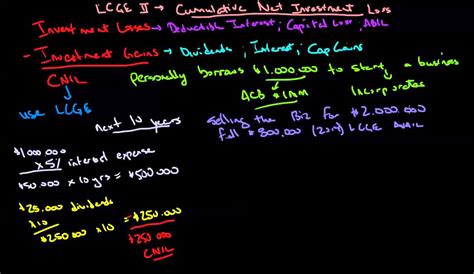 LCGE II → Cumulative Net Investment Loss
Investment Losses → Deductible Interest, Capital Loss, ABIL
- Investment Gains → Dividends, Interest, Cap Gains
CNIL
↓
use LCGE
personally borrows $1,000,000 to start a business
ACB $1MM
Incorporates
next 10 years
selling the Biz for $2,000,000
full $800,000 (2014) LCGE AVAIL
$1000000
x 5% interest expense
$50,000 x 10 yrs = $500000
$25,000 dividends
x10
$250000 x10 = $250.000
$250000
CNIL